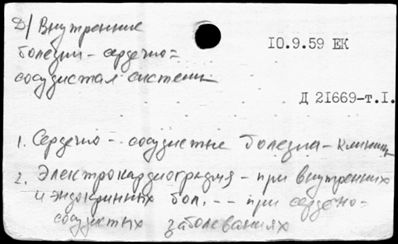 Д/ Внутренние
болезни - сердечно=
сосудистая система
10.9.59 ЕК
Д 21669-т.I.
1. Сердечно - сосудистые болезни - клиника
2. Электрокардиография - при внутренних
и эндокринных бол. -- при сердечно-
сосудистых заболеваниях